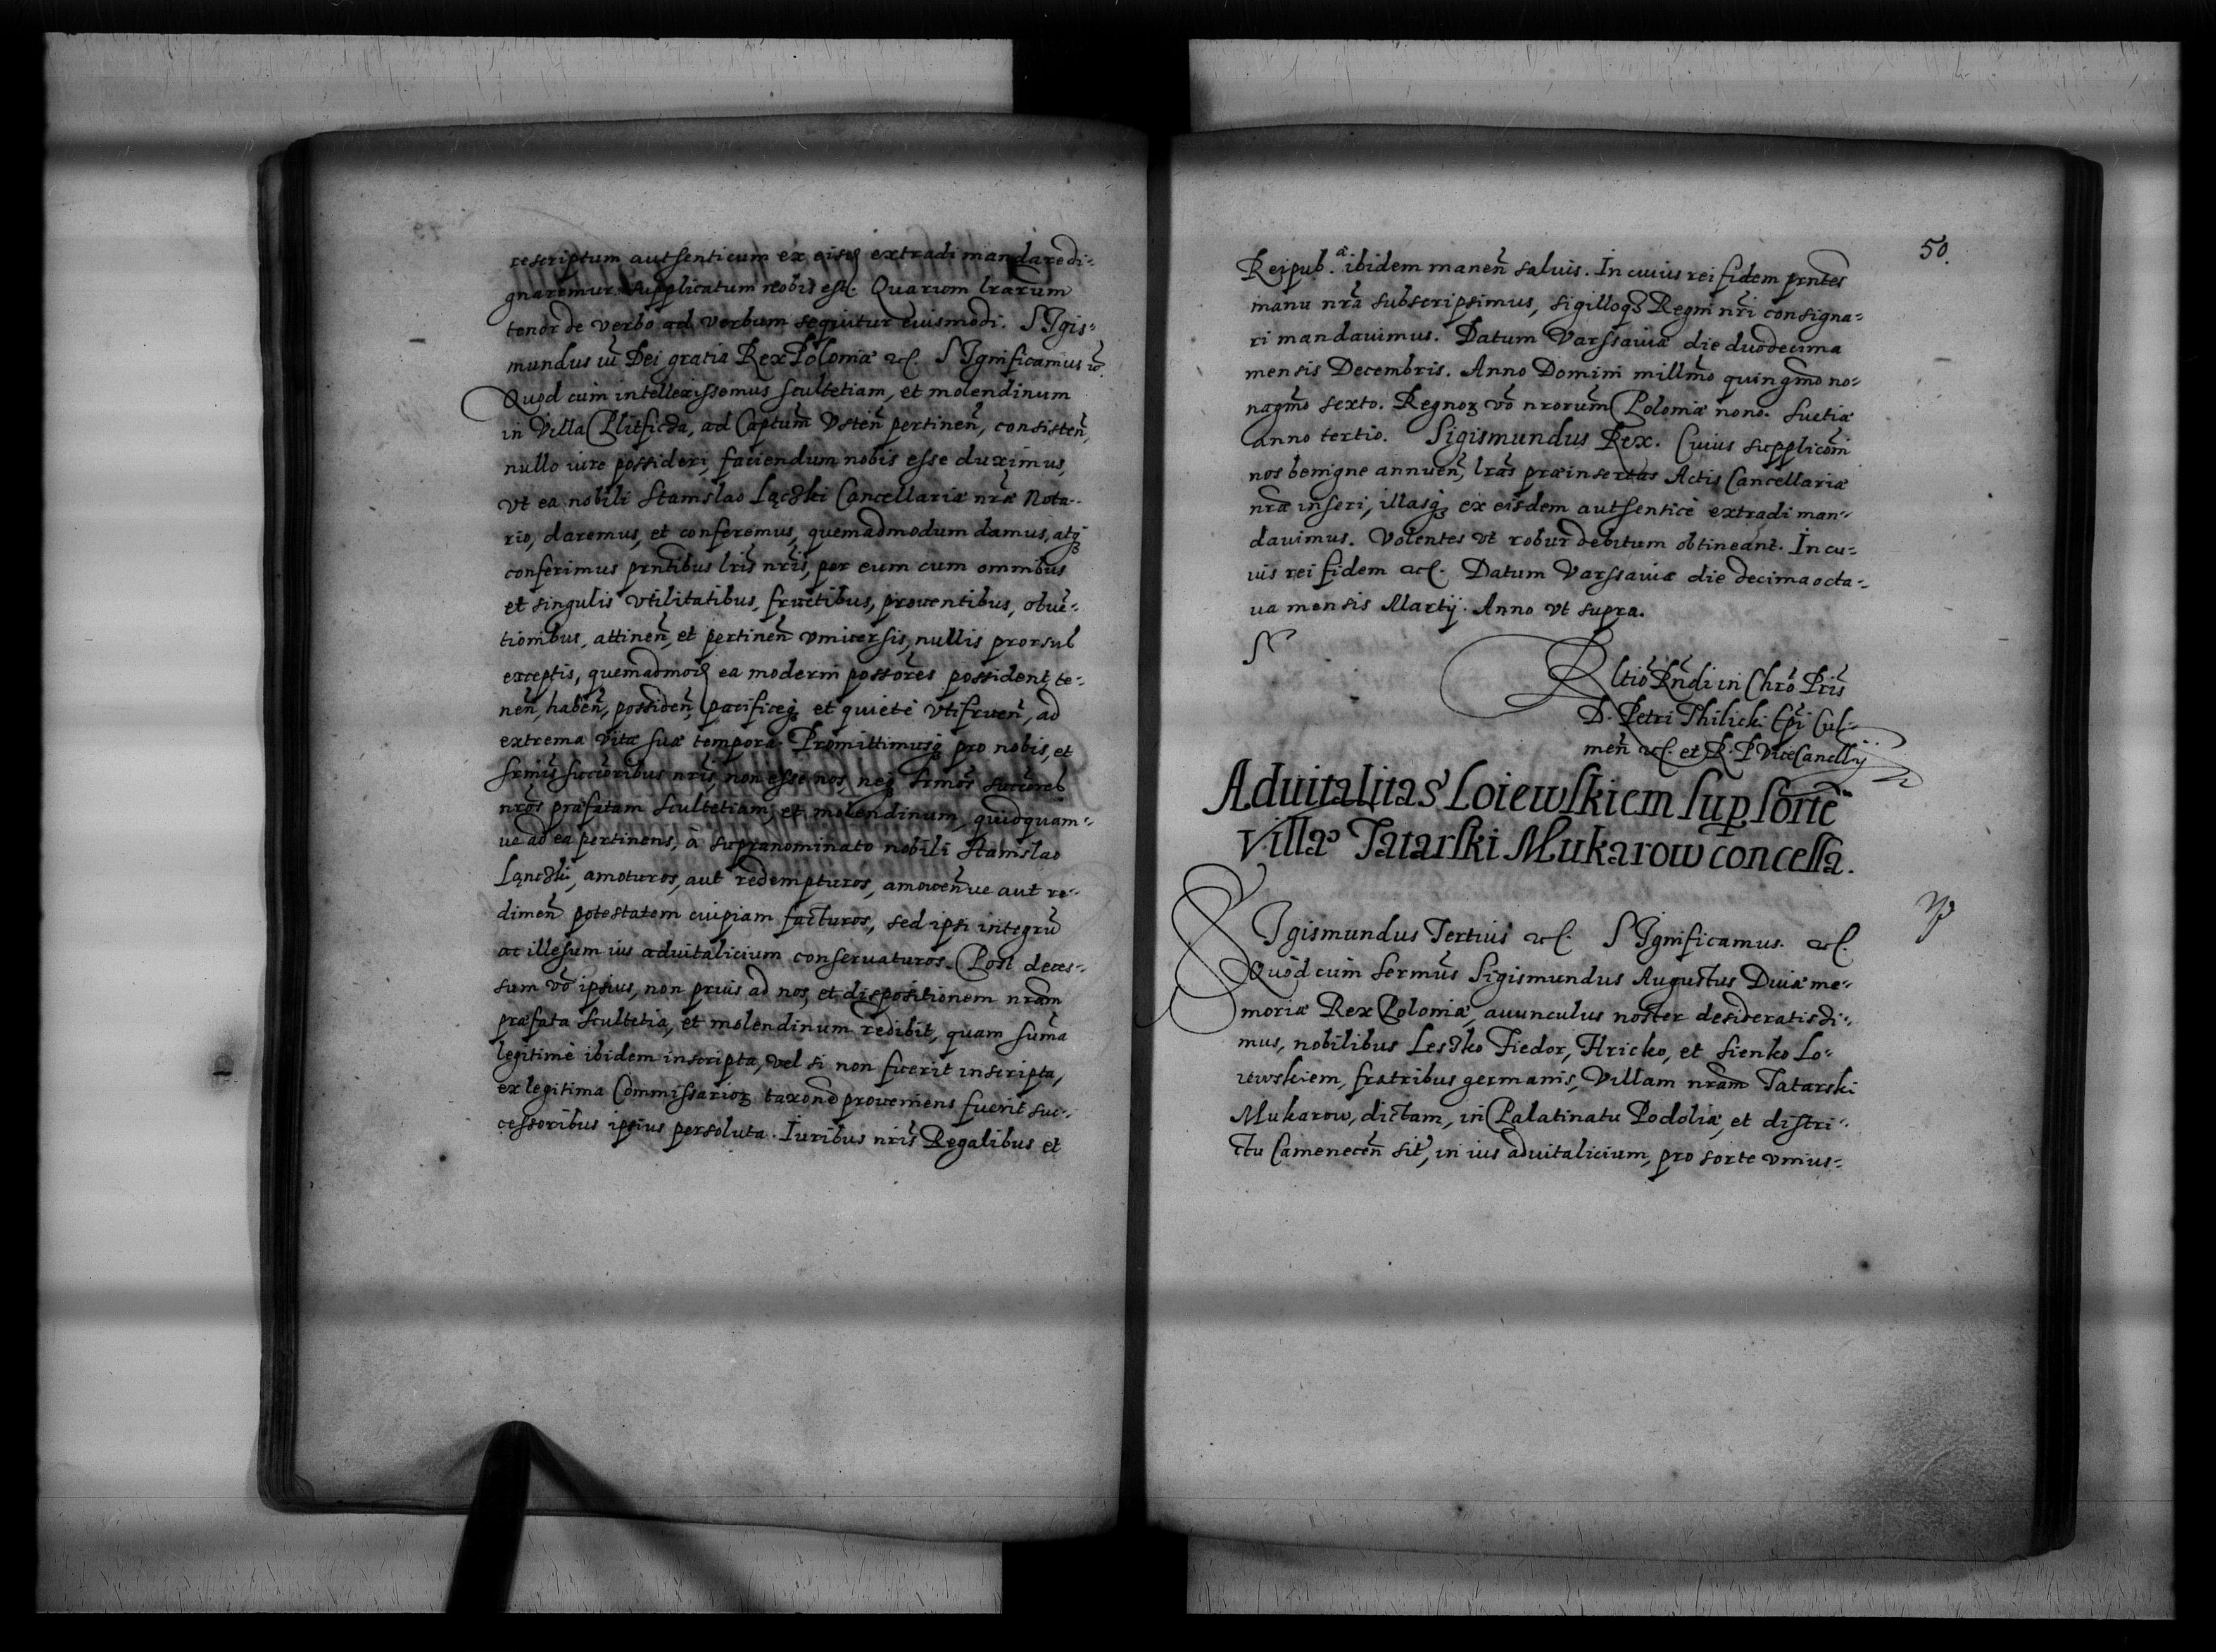 rescriptum autsenticum ex eisd extradi mandare di-
gnaremur. Supplicatum nobis est. Quarum lrarum
tenor de verbo ad verbum sequitur eiusmodi. SIgis-
mundus iii Dei gratia Rex Poloniæ etc. SIgnificamus
Quod cum intellexissemus scultetiam, et molendinum
in Villa ad Captum Usten̄ pertinen̄, consisten̄,
nullo iure possideri, faciendum nobis esse duximus,
vt ea nobili Stanislao Lączki Cancellariæ nr̄æ Nota-
rio, daremus, et conferemus, quemadmodum damus, atq
conferimus prn̄tibus lris nr̄is, per eum cum omnibus
et singulis vtilitatibus, fructibus, prouentibus, obuē-
tionibus, attinen̄, et pertinen̄ vniuersis, nullis prorsus
exceptis, quemadmod ea moderni possores possident, te-
nen̄, haben̄, possiden̄, pacificeq et quietè vtifruen̄, ad
extrema vitæ suæ tempora. Promittimusq pro nobis, et
Srmis succoribus nr̄is, non esse nos, neq Srmos succores
nr̄os præfatam scultetiam, et molendinum, quidquam-
ue ad ea pertinens, à supranominato nobili Stanislao
Łączki, amoturos, aut redempturos, amouen̄ue aut re-
dimen̄ potestatem cuipiam facturos, sed ipsi integrū
ac illesum ius aduitalicium conseruaturos. Post deces-
sum vō ipsius, non prius ad nos, et dispositionem nr̄am
præfata scultetia, et molendinum redibit, quam suma
legitimè ibidem inscripta, vel si non fuerit inscripta,
ex legitima Commissarioꝝ taxone proueniens fuerit suc-
cessoribus ipsius persoluta. Iuribus nr̄is Regalibus et
50.
Reipub. ibidem manen̄ saluis. In cuius rei fidem prn̄tes
manu nr̄a subscripsimus, sigilloq Regni nr̄i consigna-
ri mandauimus. Datum Varssauiæ die duodecima
mensis Decembris. Anno Domini millmo quingmo no-
nagmo sexto. Regnoꝝ vō nrorum Poloniæ nono. Suetiæ
anno tertio. Sigismundus Rex. Cuius supplicōni
nos benigne annuen̄, lras præinsertas Actis Cancellariæ
nr̄æ inseri, illasq ex eisdem autsenticè extradi man-
dauimus. Volentes vt robur debitum obtineant. In cu-
ius rei fidem etc. Datum Varssauiæ die decima octa-
ua mensis Martij. Anno vt supra.
Rltiō Rn̄di in Chrō Pr̄is
D. Petri Thilicki Epi Cul-
men̄ etc. et R. P. ViceCancllij
Aduitalitas Loiewskiem sup sorte
Villæ Tatarski Mukarow concessa.
SIgismundus Tertius etc. SIgnificamus. etc.
Quod cum Sermus Sigismundus Augustus Diuæ me-
moriæ Rex Poloniæ, auunculus noster desideratissi-
mus, nobilibus Leszko Fiedor, Hricko, et Sienko Lo-
iewskiem, fratribus germanis, Villam nr̄am Tatarski
Mukarow, dictam, in Palatinatu Podoliæ, et distri-
ctu Camenecen̄ sit, in ius aduitalicium, pro sorte vnius-